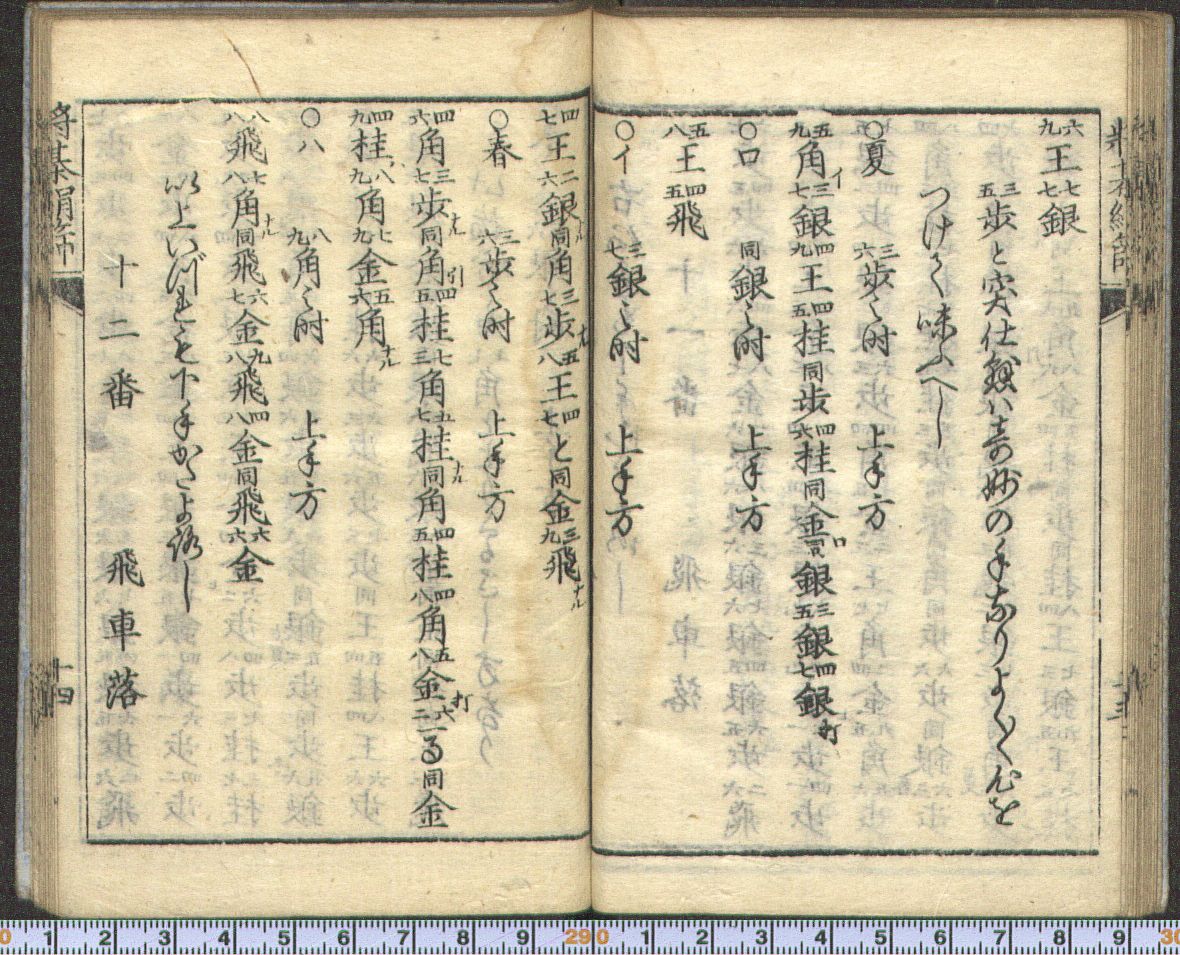 六九王七七銀
三五歩と突仕懸ハ奇妙の手なりよく〱心を
つけて味ふへし
〇夏 三六歩之時 上手方
五九角イ三七銀四九王四五桂同歩四六桂同金ロ同銀三五銀四七銀打
〇ロ 同銀之時 上手方
五八王四五飛
〇イ 三七銀之時 上手方
四七王二六銀同角三七歩ナル五八王四七と同金三九飛ナル
〇春 三六歩之時 上手方
四六角三七歩ナル同角引四五桂七三角五七桂ナル同角四五桂四八角五八金打
同金
四九桂ハ八九角七九金五六角ナル
〇ハ 八九角之時 上手方
八八飛七八角ナル同飛六七金九八飛四八金同飛六六金
以上いづれも下手かたよろし
十二番 飛車落
将棊絹篩
十四